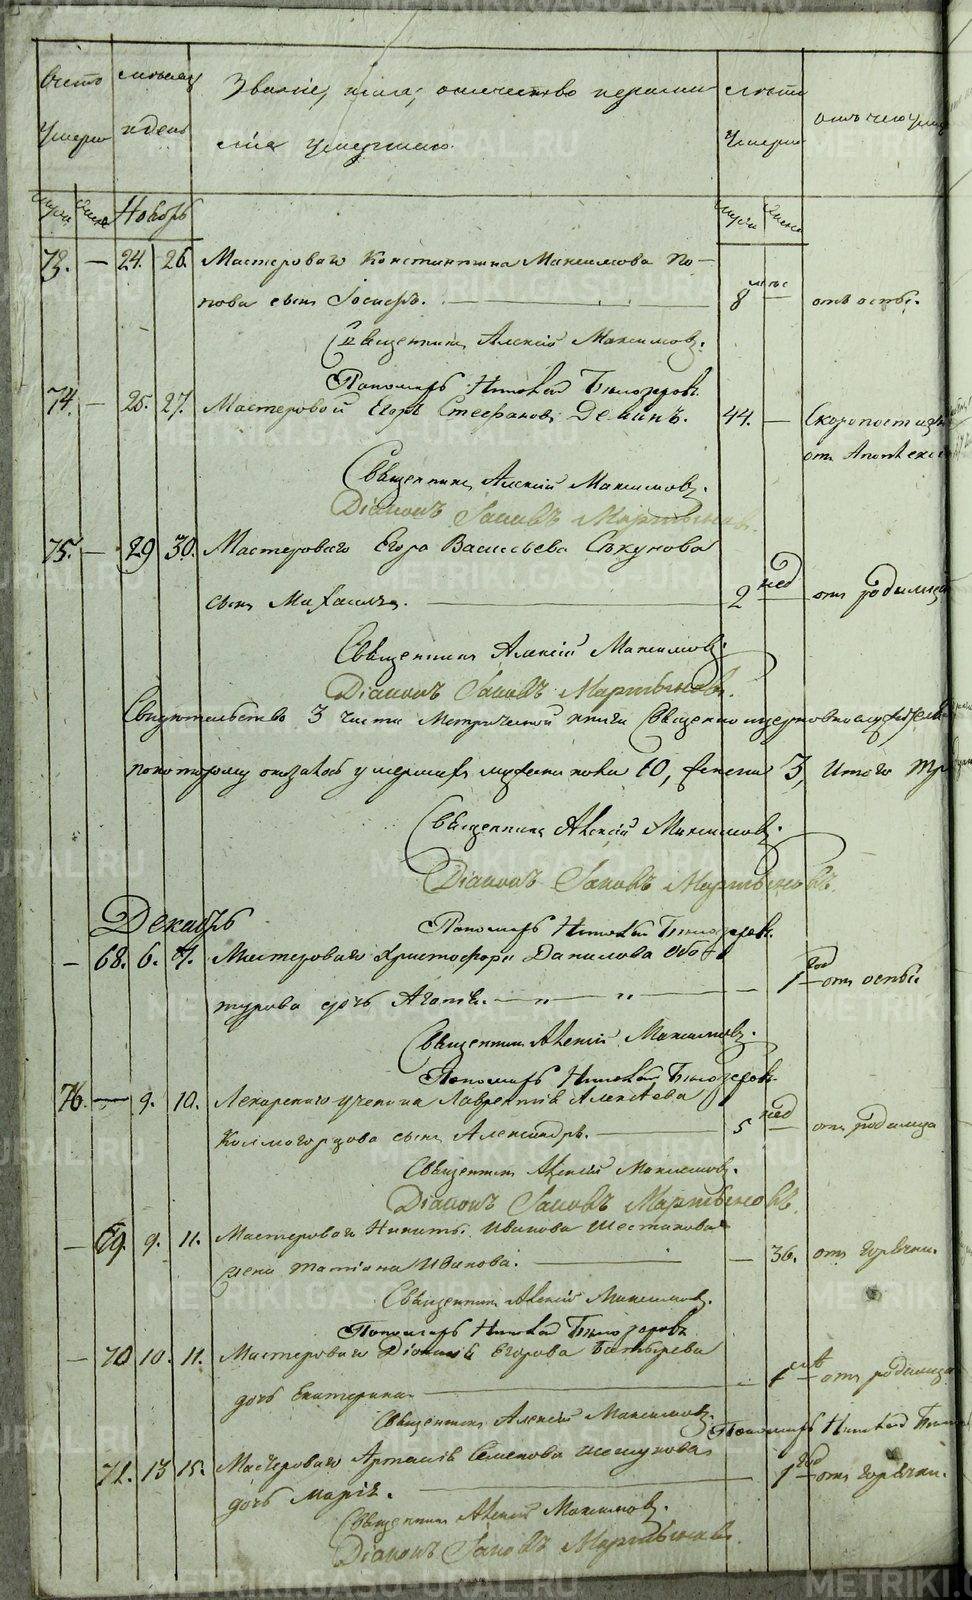 Счетъ умерш
мѣсяцъ и день
Званіе, имя, отчество и фамилія умершаго.
Лѣта умерш
отъ чего умер
Ноябрь
73. — 24. 26. Мастероваго Константина Максимова По-
пова сынъ Іосифъ. — 8 мѣс — отъ оспы.
Священникъ Алексій Максимовъ.
Пономарь Николай Бѣлозеровъ
74. — 25. 27. Мастеровой Егоръ Стефановъ Деминъ. 44. — Скоропостижн
отъ Апоплекс
Священникъ Алексій Максимовъ.
Діаконъ Іаковъ Мартыновъ.
75. — 29 30. Мастероваго Егора Васильева
сынъ Михаилъ. — 2 нед отъ родимца
Священникъ Алексій Максимовъ.
Діаконъ Іаковъ Мартыновъ.
3 части Метрической книги Священно и церковнослужители
по которому оказалось умершихъ мужеска пола 10, женска 3, Итого
Священникъ Алексій Максимовъ.
Діаконъ Іаковъ Мартыновъ.
Пономарь Николай Бѣлозеровъ.
Декабрь
— 68. 6. 7. Мастероваго Христофора Данилова
дочь Агафія. — „ — „ — — 1 год отъ оспы.
Священникъ Алексій Максимовъ.
Пономарь Николай Бѣлозеровъ.
76. — 9. 10. Лекарскаго ученика Лаврентія Алексѣева
Колмогорцова сынъ Александръ. — 5 нед — отъ родимца
Священникъ Алексій Максимовъ.
Діаконъ Іаковъ Мартыновъ.
— 69. 9. 11. Мастероваго Никиты Иванова Шестакова
жена Татіана Иванова. — — 36. отъ горячки.
Священникъ Алексій Максимовъ.
Пономарь Николай Бѣлозеровъ
— 70 10. 11. Мастероваго Діонисія Егорова Батырева
дочь Екатерина — — 1 отъ родимца
Священникъ Алексій Максимовъ.
Пономарь Николай
71. 13 15. Мастероваго Артемія Семенова
дочь Марія. — 1 год отъ горячки.
Священникъ Алексій Максимовъ.
Діаконъ Іаковъ Мартыновъ.
METRIKI.GASO-URAL.RU